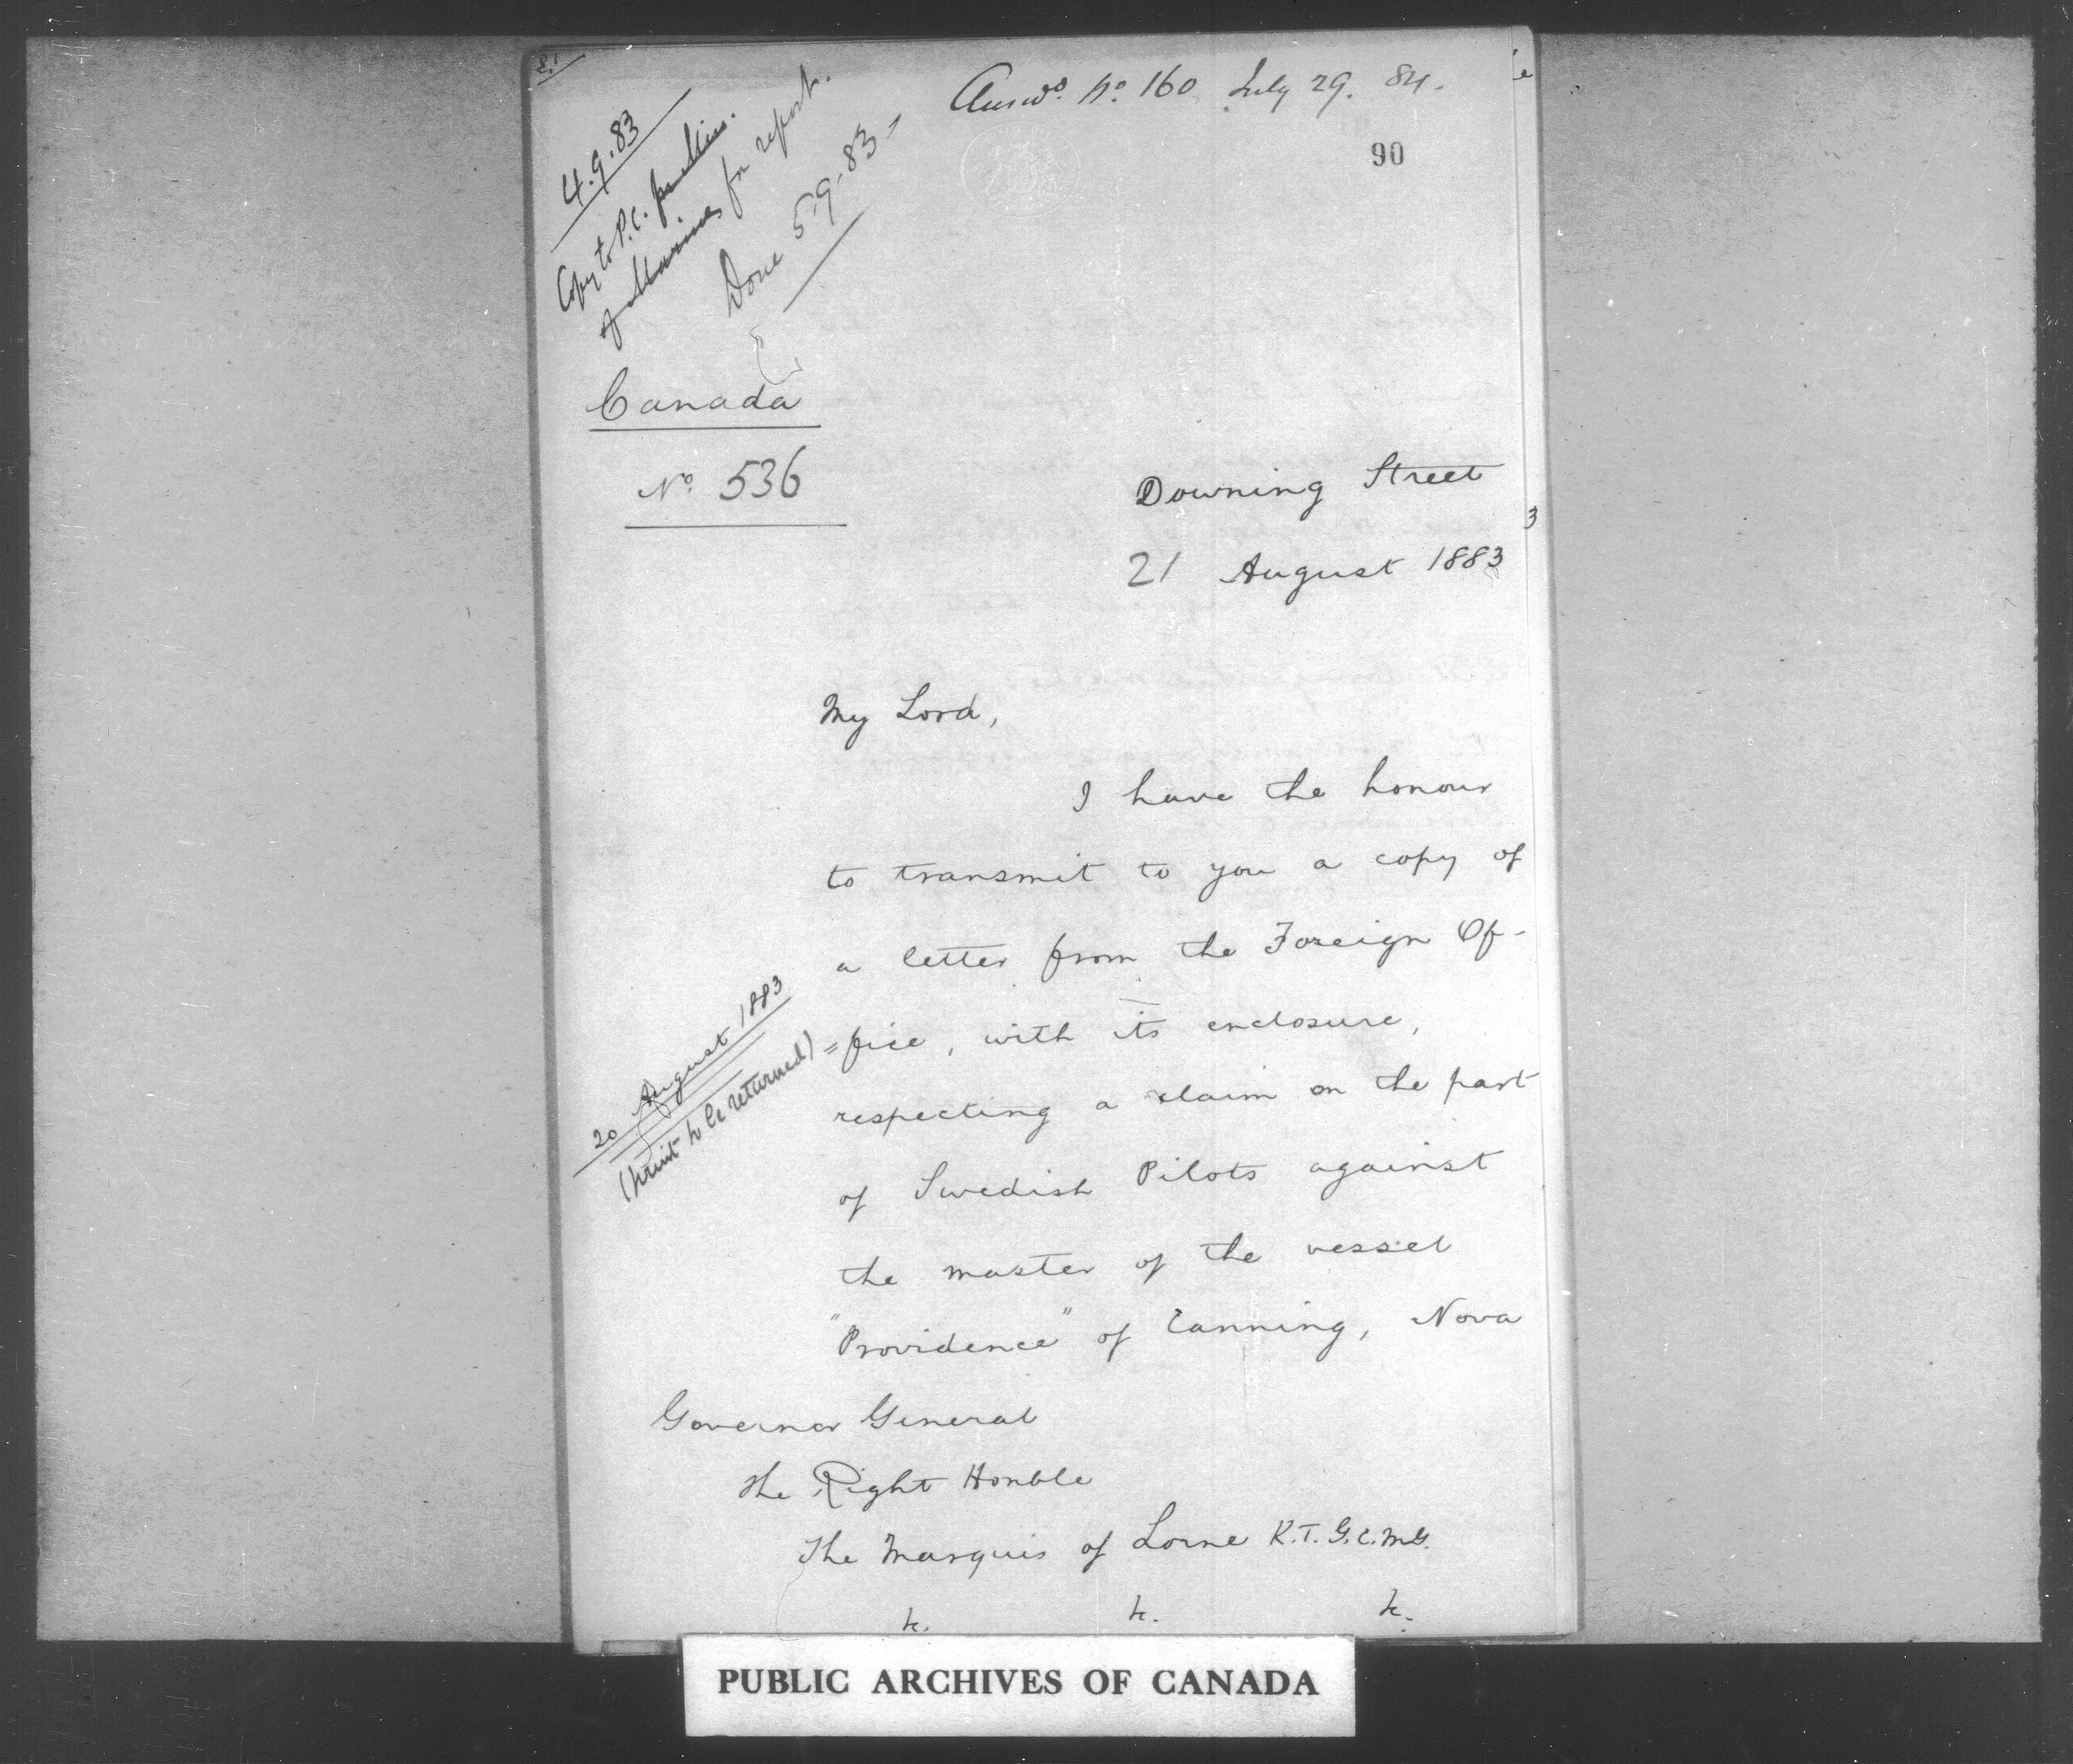 Answd. No. 160 July 29. 84.
90
4.9.83
Copy to P.C. for Min.
of Marine for report.
Done 5.9.83
Canada
No. 536
Downing Street
21 August 1883
My Lord,
I have the honour
to transmit to you a copy of
a letter from the Foreign Of-
=fice, with its enclosure,
20 August 1883
(print to be returned)
respecting a claim on the part
of Swedish Pilots against
the master of the vessel
"Providence" of Canning, Nova
Governor General
The Right Honble
The Marquis of Lorne K.T. G.C.M.G.
&c. &c. &c.
PUBLIC ARCHIVES OF CANADA